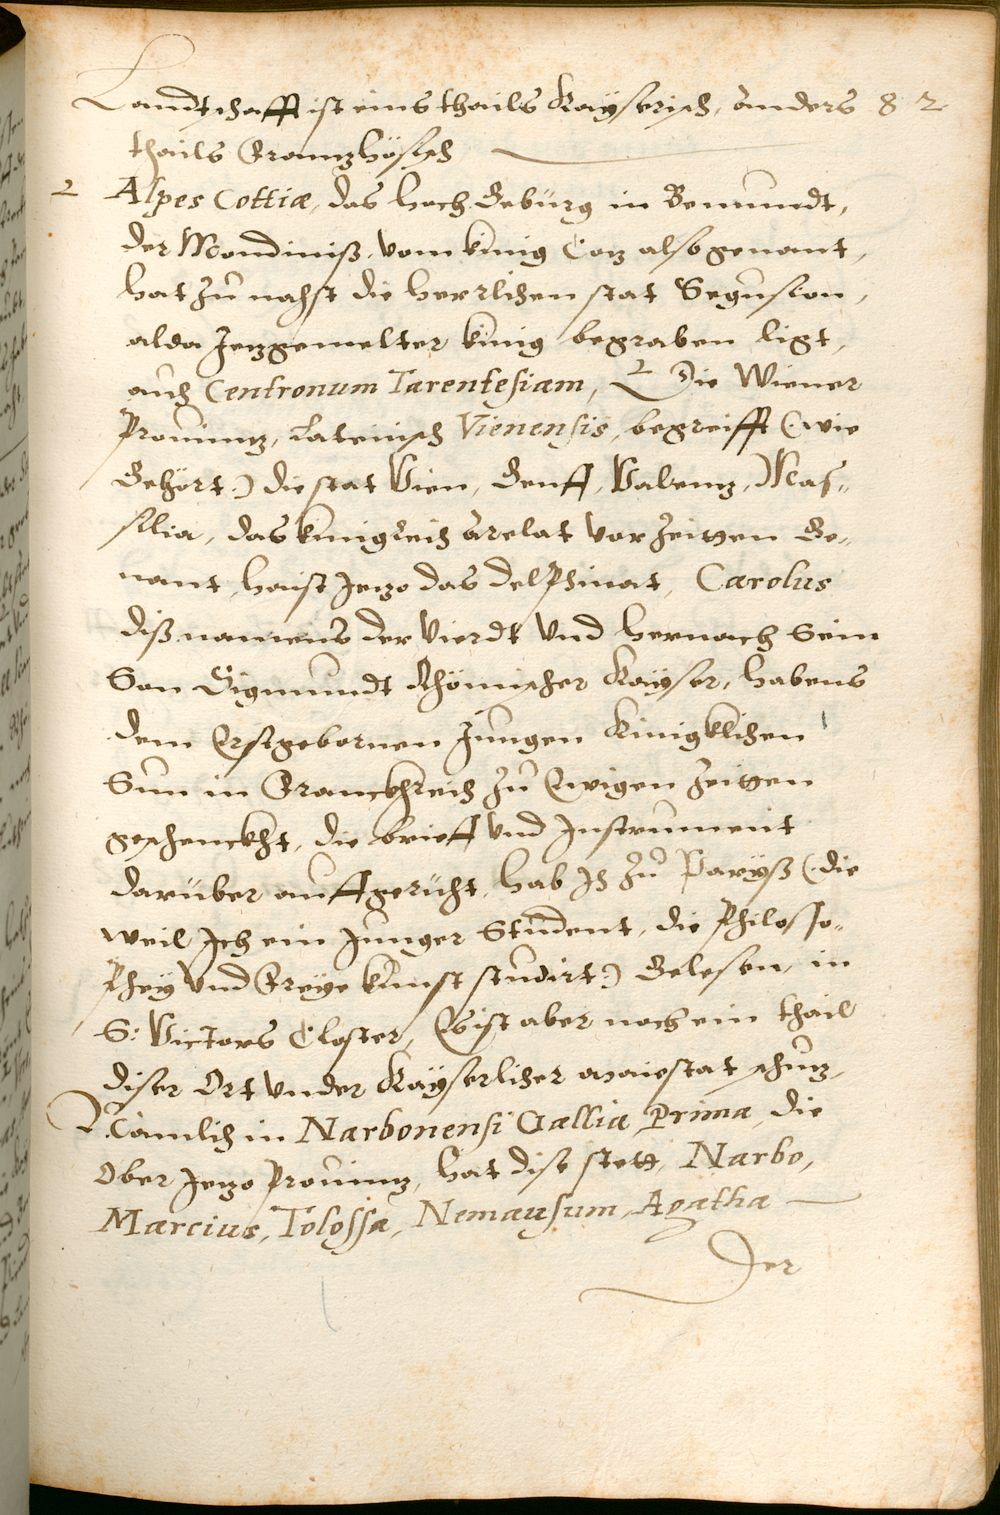 Landtschafft ist eins thails Kayserisch, anders 82
thails Frantzhösisch
2 Alpes Cottiæ, das hoch Gebürg in Bemundt,
der Mondiniß, vom künig Cotz also genant,
hat zu nahst die herrlichen stat Segusion,
alda Jetzgemelter künig begraben ligt,
auch Centronum Tarentesiam, 2 Die Wiener
Prouintz, Lateinisch Vienensis, begreifft (wie
Gehört:) die stat Vien, Genff, Valentz, Mas-
silia, das künigreich Arelat vor zeitten Ge-
nant, haist Jetzo das delphinat, Carolus
diß namens der Vierdt Vnd hernach Sein
Son Sigmundt Rhömischer Kayser, habens
dem Erstgebornen Jungen Kinigklichen
Sun in Franckhreich zu Ewigen zeitten
geschenckht, die brieff Vnd Instrument
darüber auffgericht, hab Jch zu Paryß (:die
weil Jch ein Junger Student, die Philosso-
phey Vnd Freye kunst studirt:) Gelesen, in
S: Victors Closter, Es ist aber noch ein thail
diser Ort Vnder Kayserlicher maiestat schutz,
Namlich in Narbonensi Gallia Prima, die
Ober Jetzo Prouintz, hat dise stett, Narbo,
Marcius, Tolossa, Nemausum, Agatha
Der